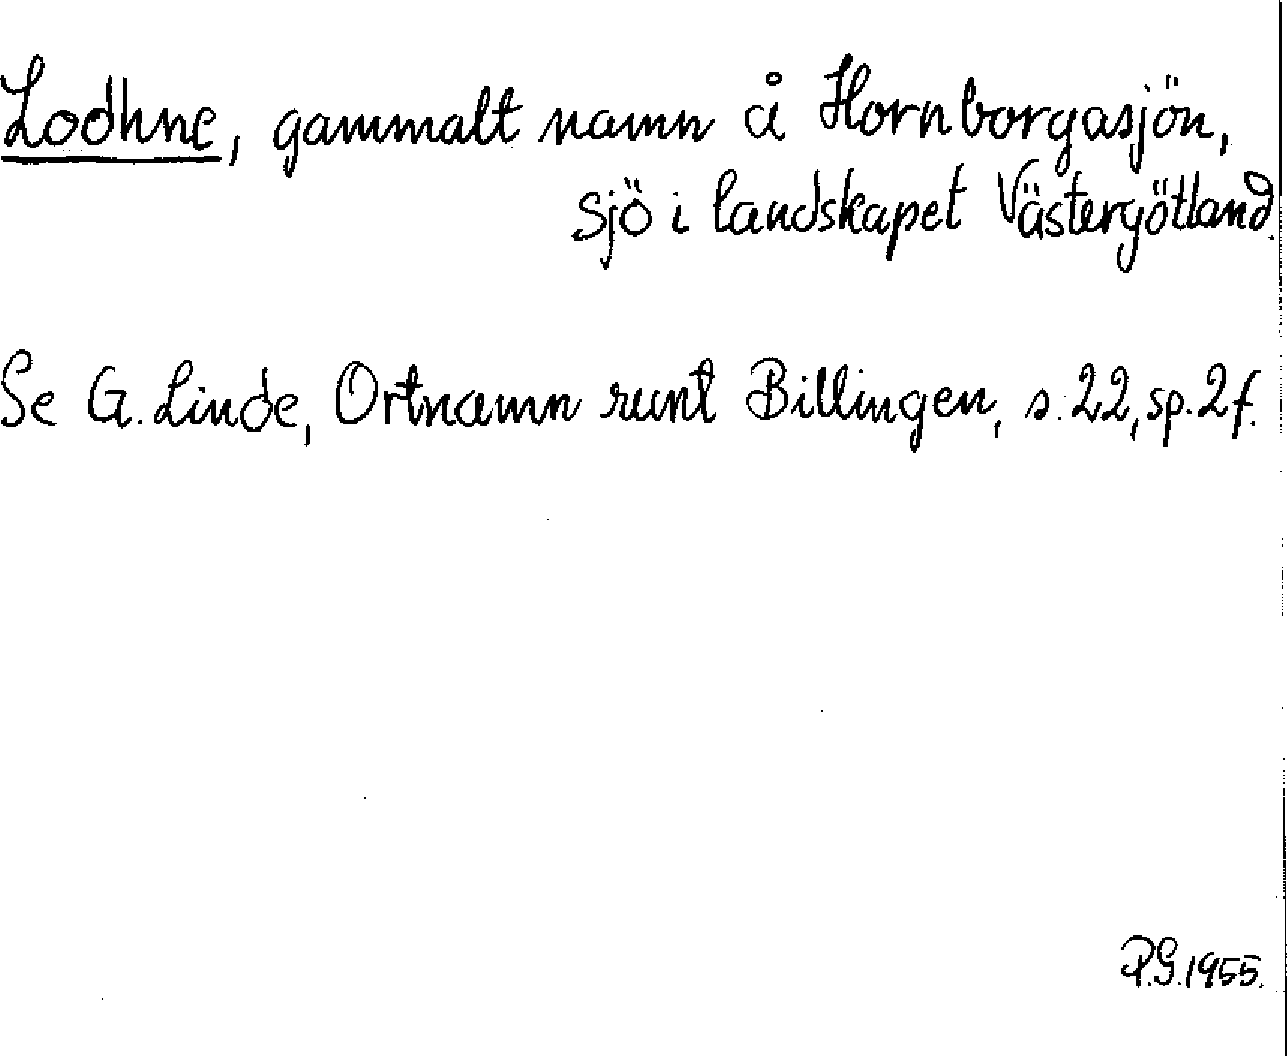 Lodhne, gammalt namn å Hornborgasjön,
sjö i landskapet Västergötland.
Se G. Linde, Ortnamn runt Billingen, s. 22, sp. 2 f.
P.G. 1955.